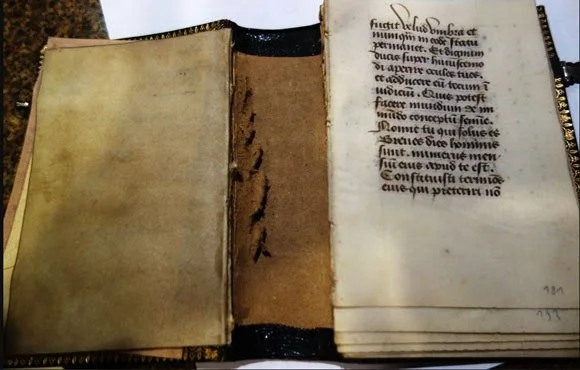 fugit velud vmbra et
nunqm in eode statu
permanet. Et dignum
ducis super huiuscemo
di aperire oculos tuos.
et adducere eū tecum ī
iudiciū. Quis potest
facere mundum de im
mūdo conceptū semīe.
Nonne tu qui solus es
Breues dies hominis
sunt. numerus men
siū eius apud te est.
Constituisti termīos
eius qui preteriri nō
191
193